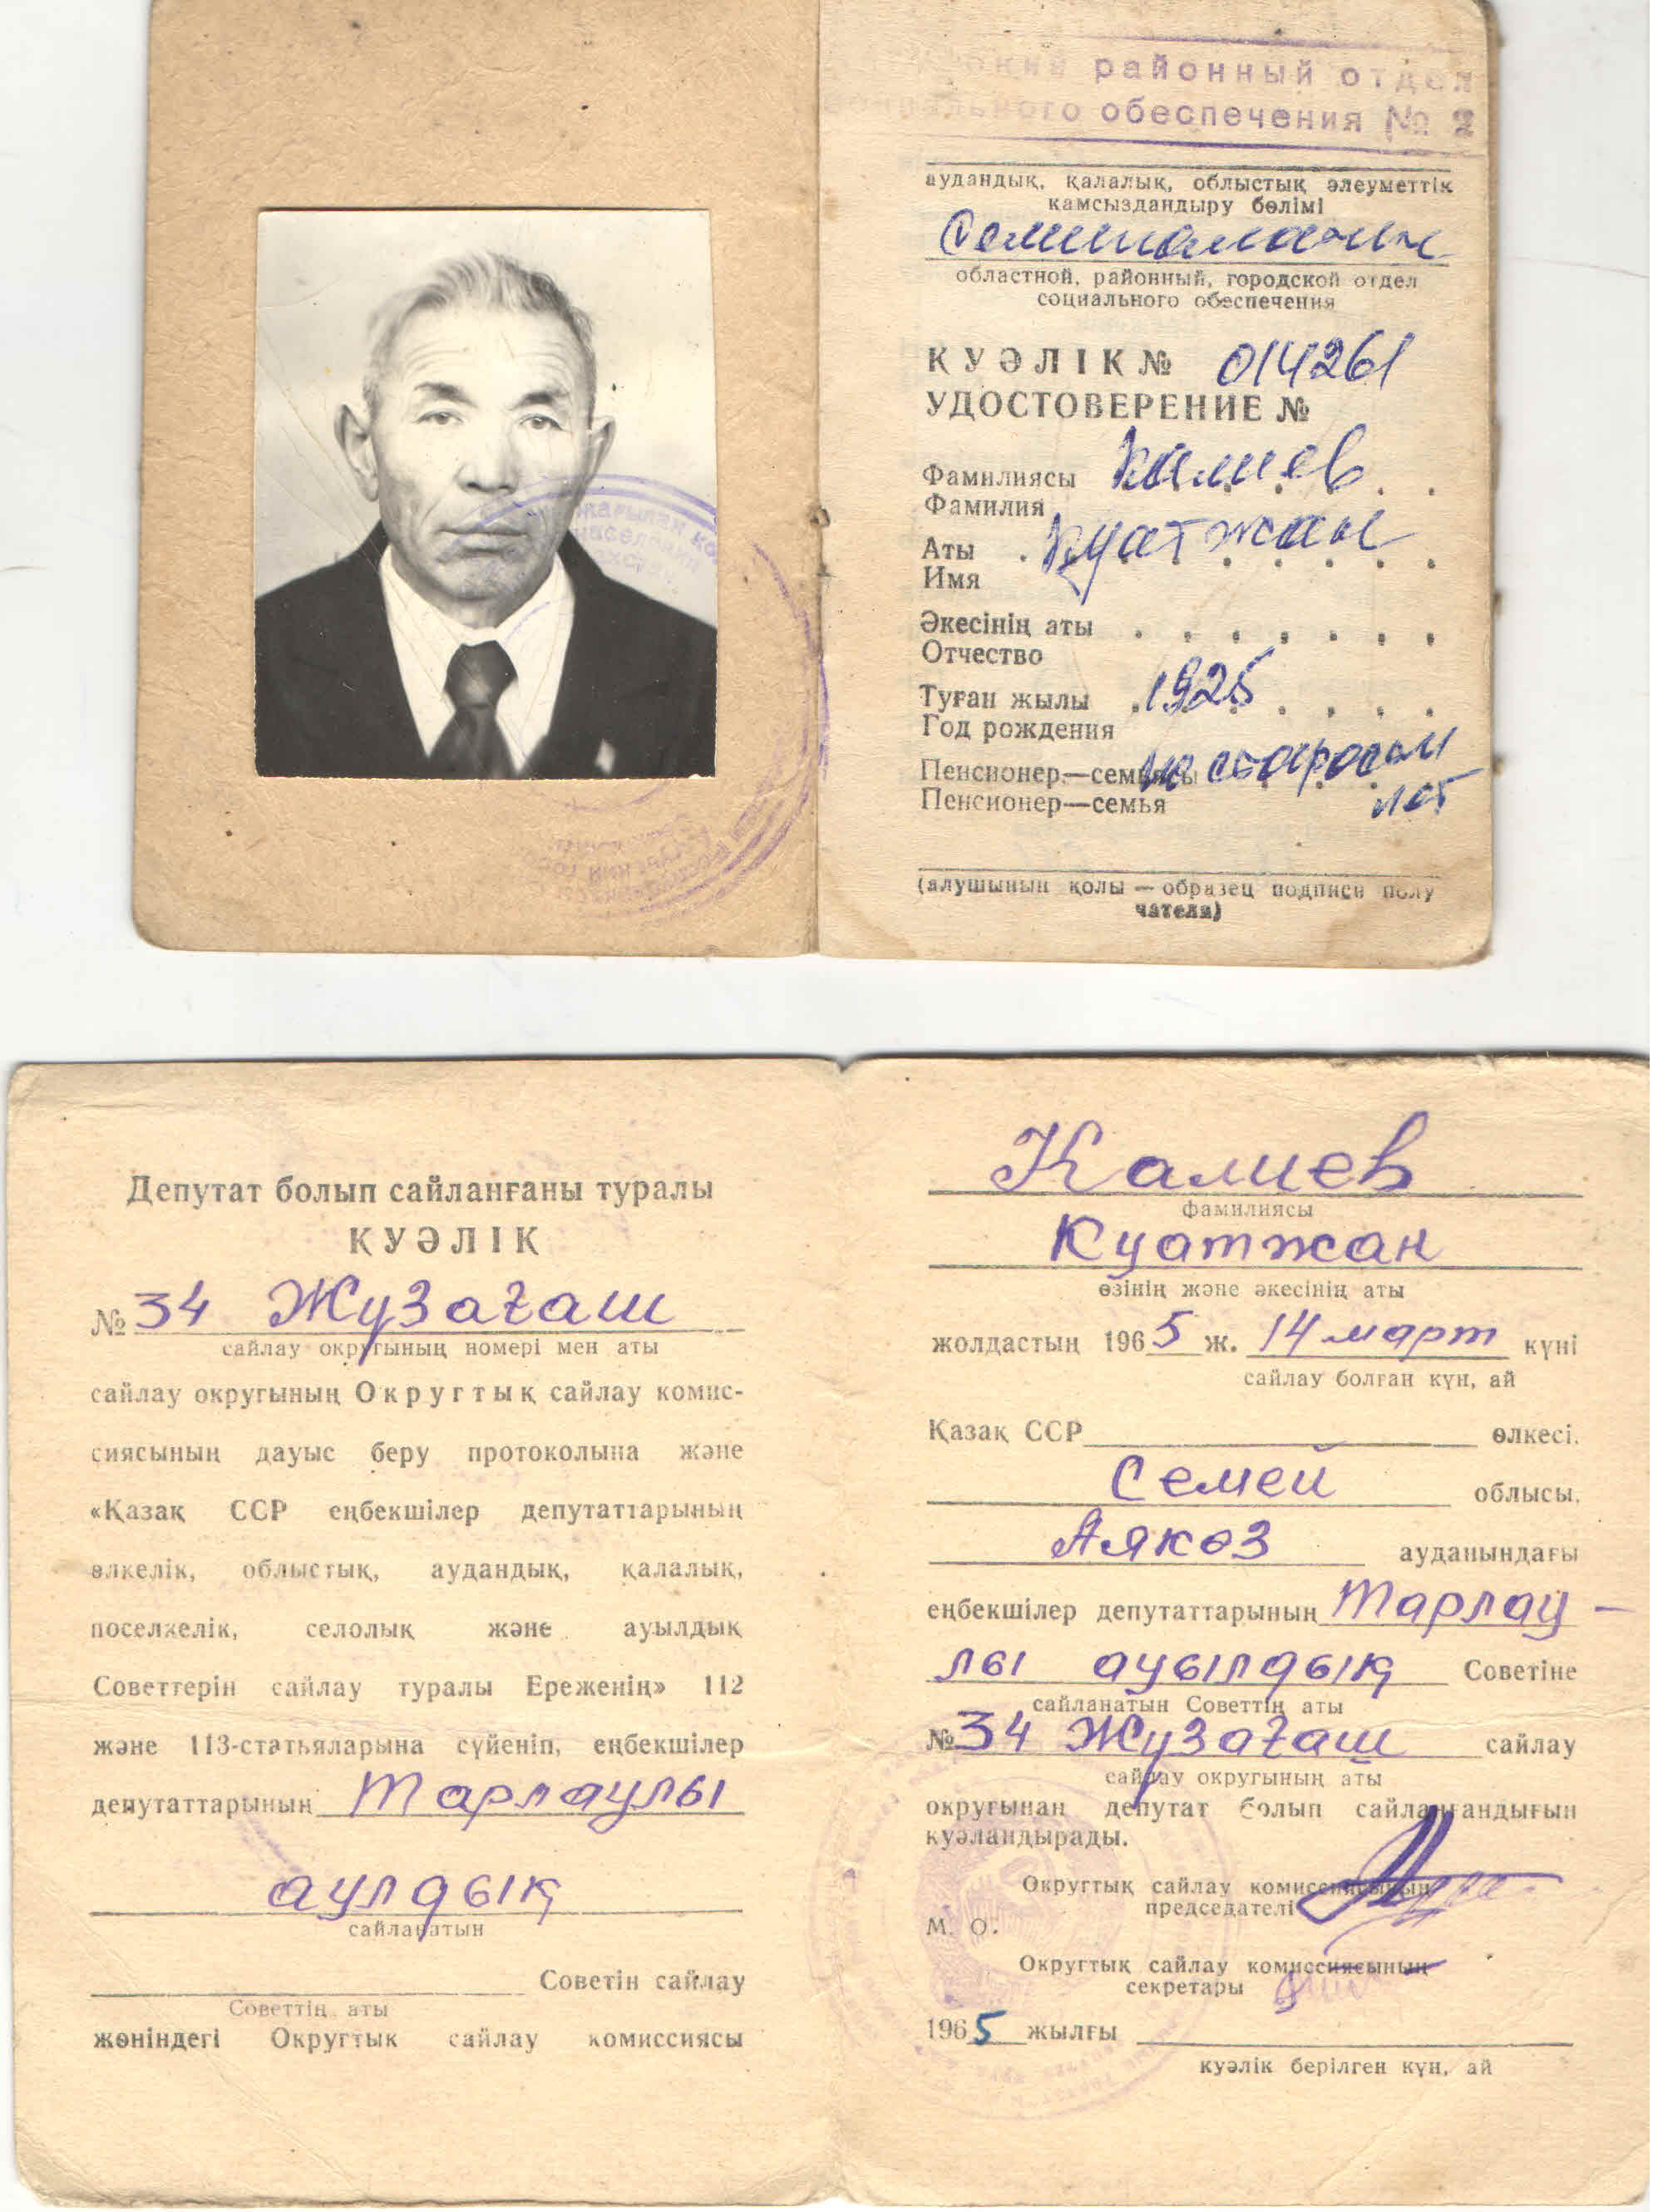 районный отдел
обеспечения №
аудандық, қалалық, облыстық әлеуметтік
камсыздандыру бөлімі
областной, районный, городской отдел
социального обеспечения
КУӘЛІК № 014261
УДОСТОВЕРЕНИЕ №
Фамилиясы Калиев
Фамилия
Аты Куатжан
Имя
Әкесінің аты
Отчество
Туған жылы 1925
Год рождения
Пенсионер—семьясы по старости
Пенсионер—семья лет
(алушының қолы — образец подписи полу
чателя)
Депутат болып сайланғаны туралы
КУӘЛІК
№ 34 Жузағаш
сайлау округының номері мен аты
сайлау округының Округтық сайлау комис-
сиясының дауыс беру протоколына және
«Қазақ ССР еңбекшілер депутаттарының
өлкелік, облыстық, аудандық, қалалық,
поселкелік, селолық және ауылдық
Советтерін сайлау туралы Ереженің» 112
және 113-статьяларына сүйеніп, еңбекшілер
депутаттарының Тарлаулы
аулдық
сайланатын
Советін сайлау
Советтің аты
жөніндегі Округтык сайлау комиссиясы
Калиев
фамилиясы
Куатжан
өзінің және әкесінің аты
жолдастың 1965 ж. 14 март күні
сайлау болған күн, ай
Қазақ ССР өлкесі.
Семей облысы.
Аякөз ауданындағы
еңбекшілер депутаттарының Тарлау-
лы ауылдық Советіне
сайланатын Советтің аты
№ 34 Жузағаш сайлау
сайлау округының аты
округынан депутат болып сайланғандығын
куәландырады.
Округтық сайлау комиссиясының
председателі
М. О.
Округтық сайлау комиссиясының
секретары
1965 жылғы
куәлік берілген күн, ай